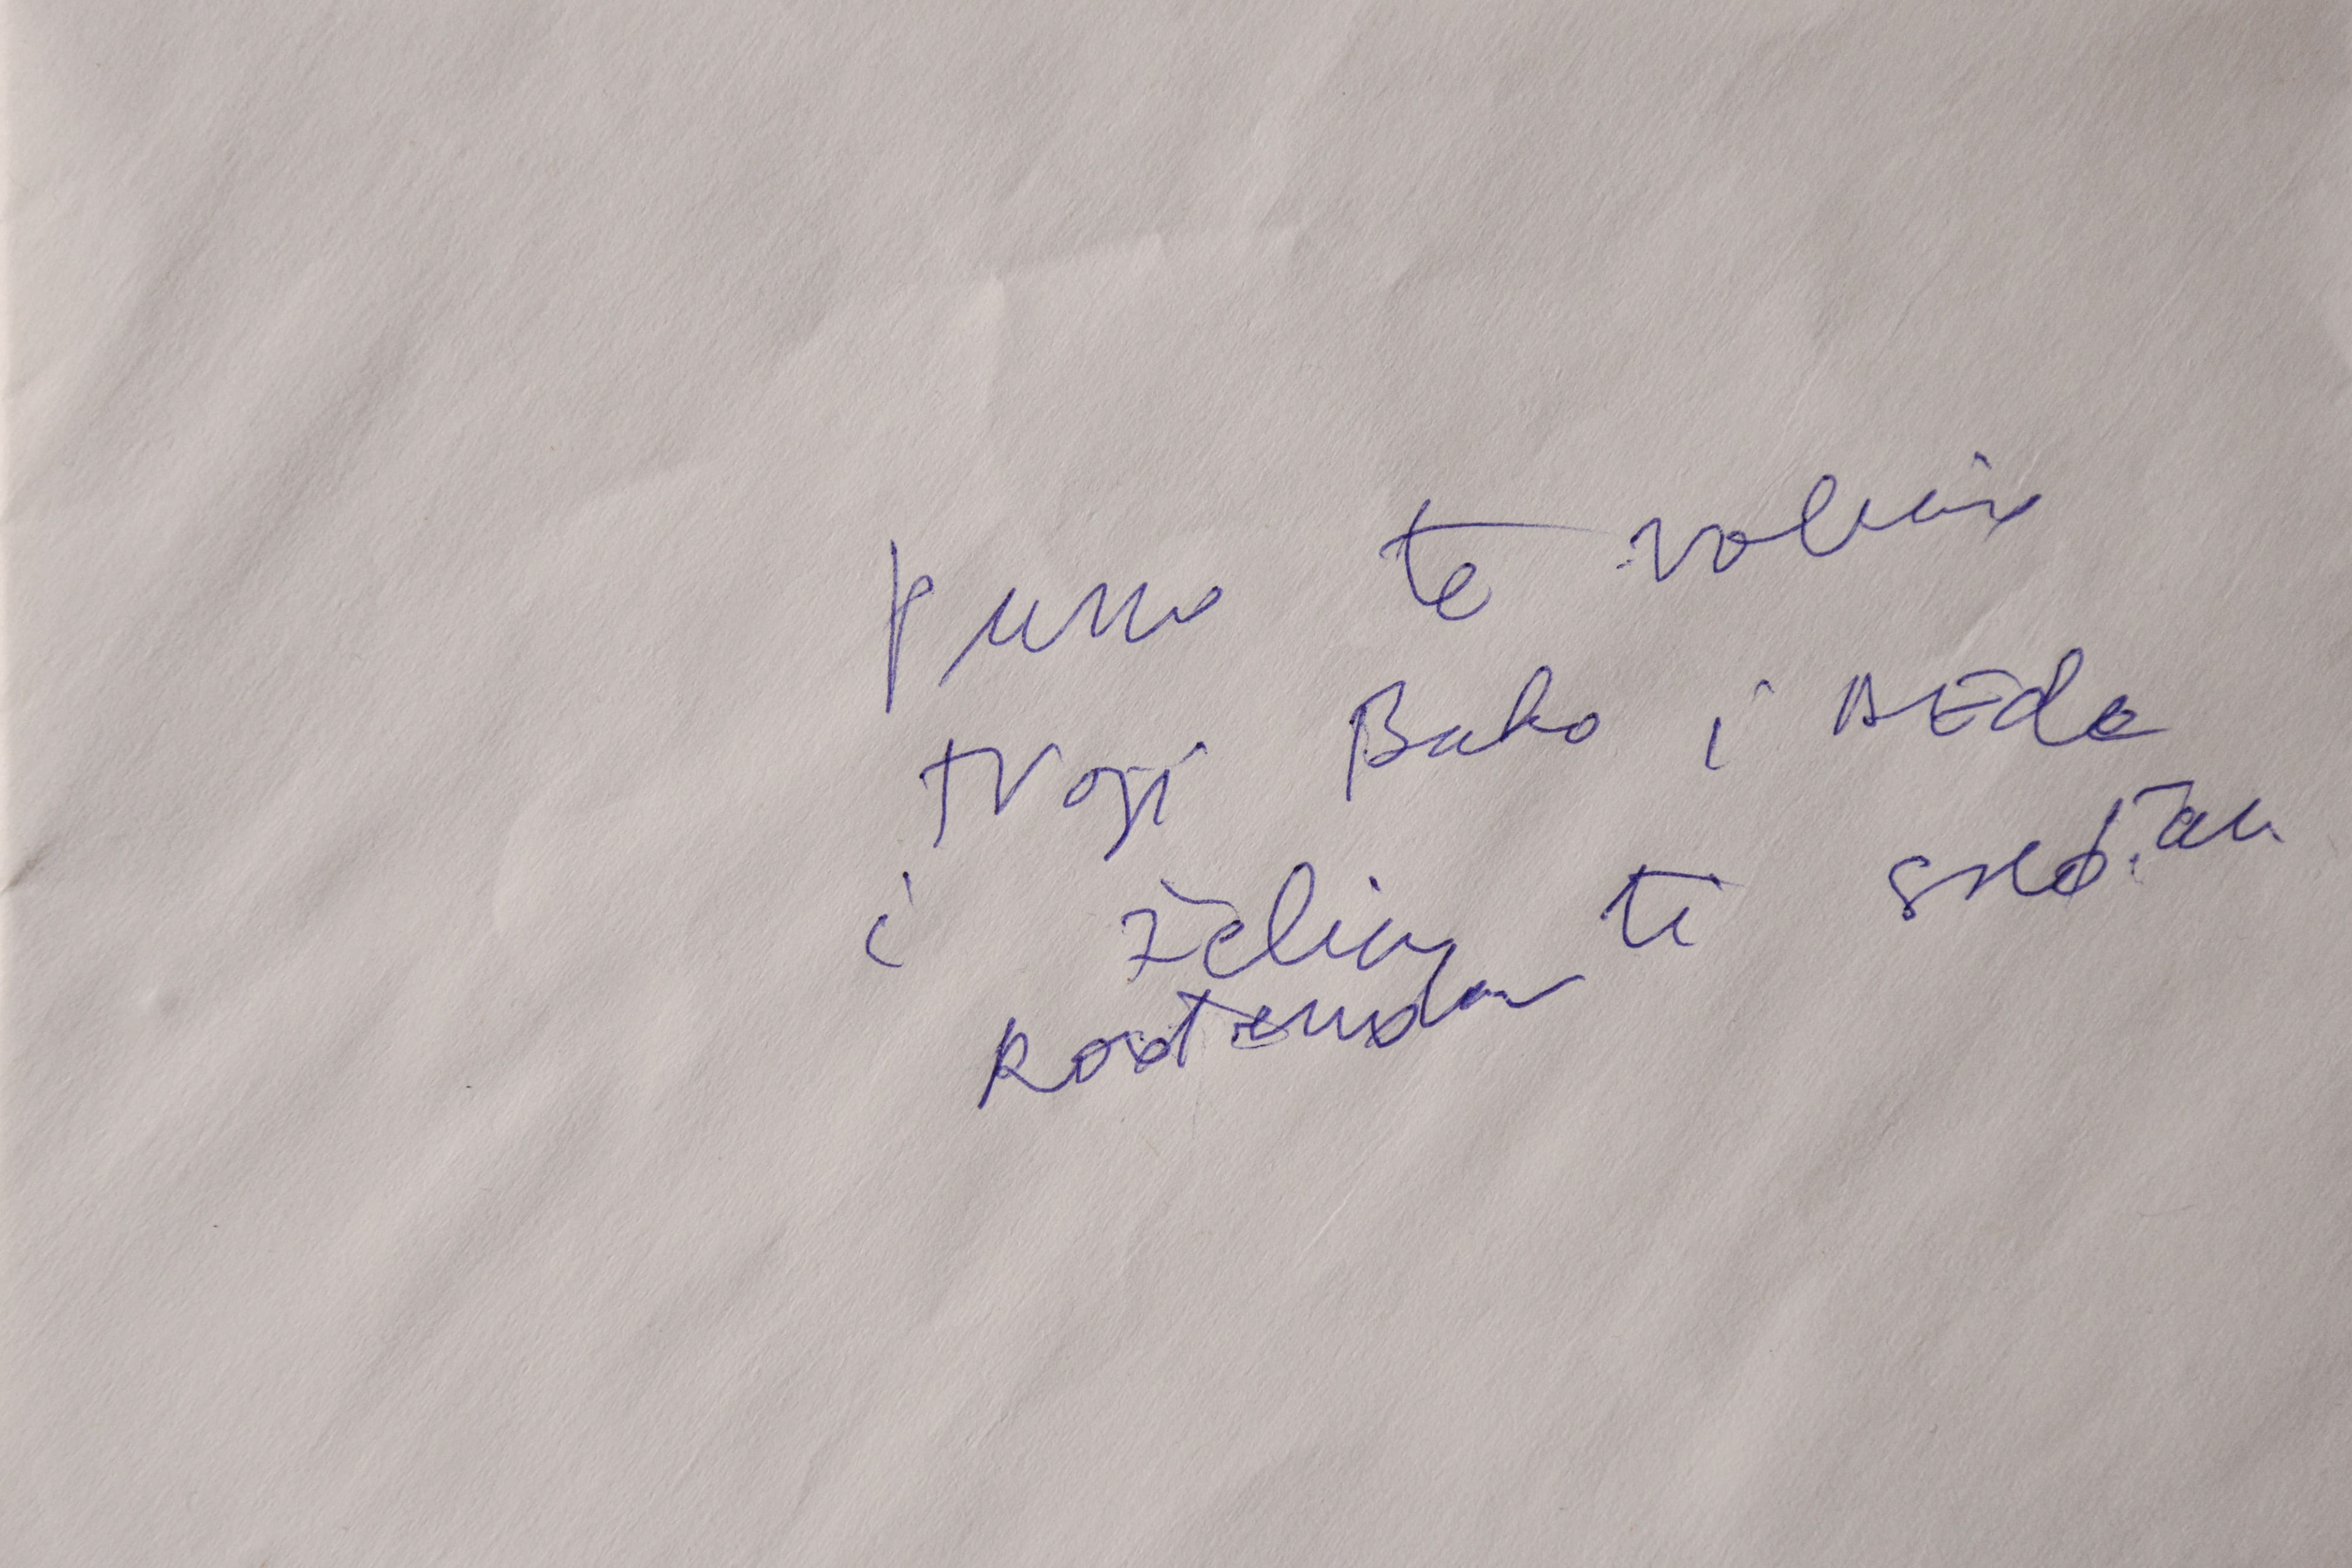 puno te volim
tvoji Bako i DEda
i želim ti srećan
Rođendan